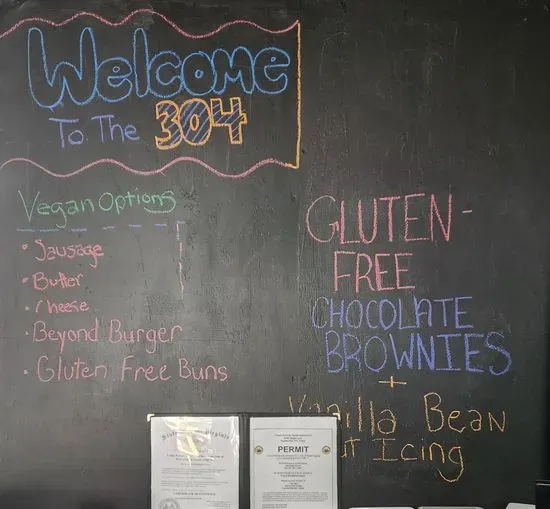 Welcome
To The 304
Vegan Options
• Sausage
• Butter
• Cheese
• Beyond Burger
• Gluten Free Buns
GLUTEN-
FREE
CHOCOLATE
BROWNIES
+
Vanilla Bean
ut Icing
PERMIT